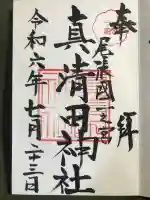 奉拝
尾張國一之宮
真清田神社
令和六年七月二十三日